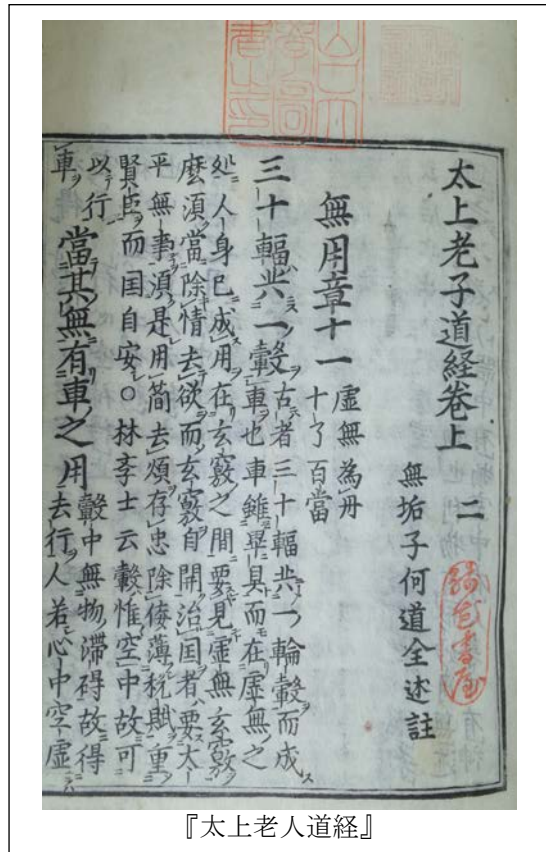 太上老子道経巻上　二
無垢子何道全述註
無用章十一
虚無為
十了百當
三十輻共一轂
古者三十輻共一輪轂而成
車也車雖畢具而在虚無之
処人身已成用在玄竅之間要見虚無玄竅
麼須當除情去欲而玄竅自開治国者要太
平無事須是用簡去煩存忠除佞薄税賦重
賢臣而国自安○林李士云轂惟空中故可
以行
車
當其無有車之用
轂中無物滞碍故得
去行人若心中空虚
『太上老人道経』